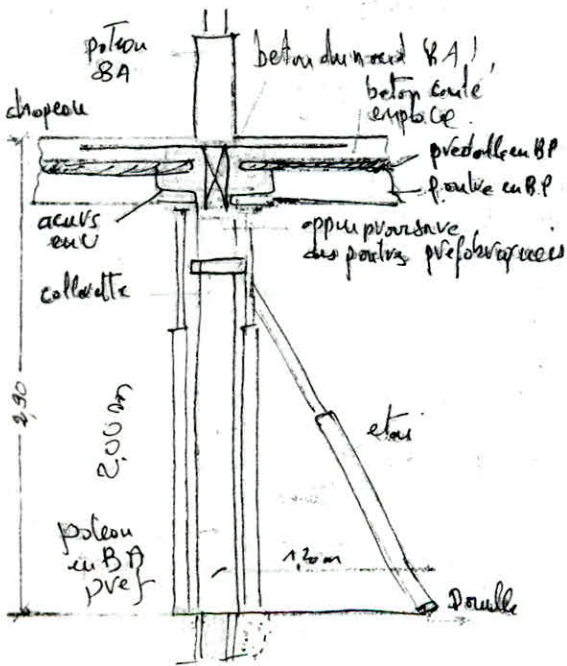 poteau
BA
beton du noeud BA
beton coulé
en place
chapeau
predalle en BP
poutre en BP
en U
appui provisoire
des poutres préfabriquées
2,90
2,00 m
etai
poteau
en BA
pref
1,20 m
Douille